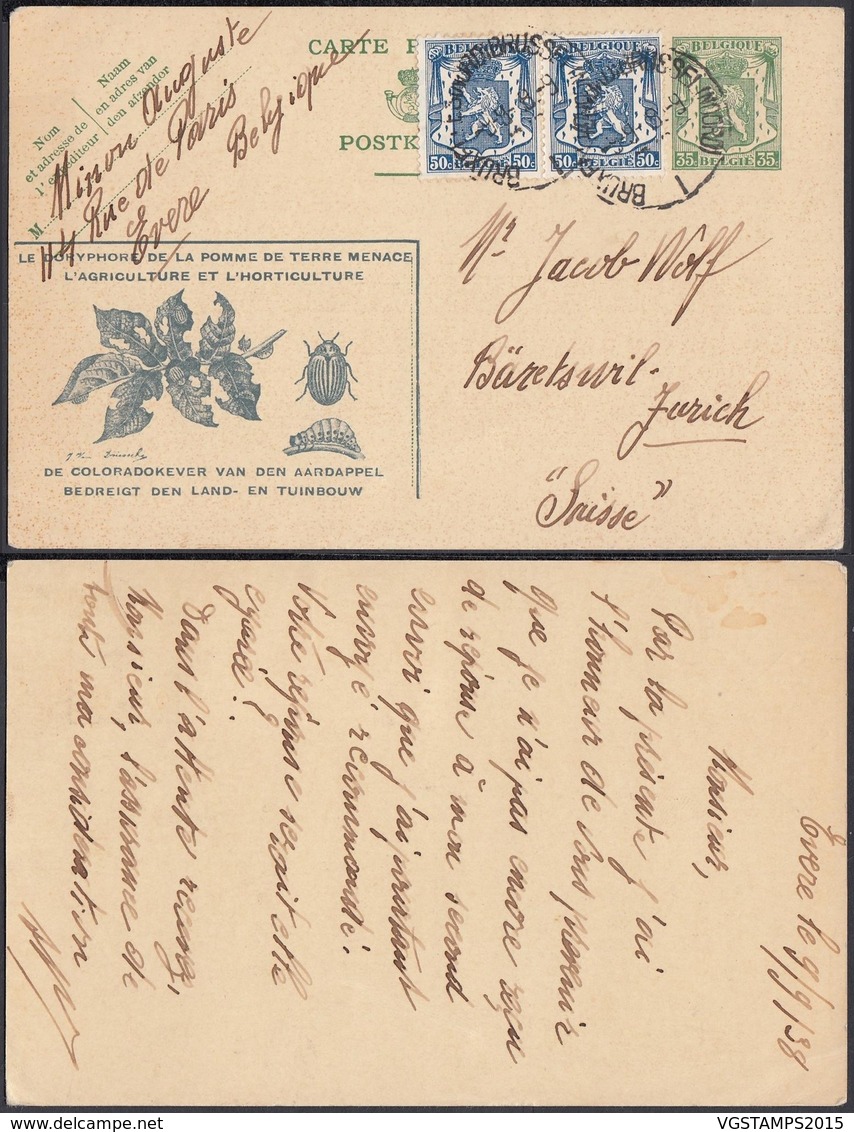 CARTE
POSTK
Nom
et adresse de
l'expéditeur
Naam
en adres van
den afzender
M Minon Auguste
114 Rue de Paris
Evere Belgique
BELGIQUE
50c 50c
BELGIË
BELGIQUE
50c 50c
BELGIË
BELGIQUE
35c 35c
BELGIË
LE DORYPHORE DE LA POMME DE TERRE MENACE
L'AGRICULTURE ET L'HORTICULTURE
DE COLORADOKEVER VAN DEN AARDAPPEL
BEDREIGT DEN LAND- EN TUINBOUW
Mr Jacob Wolf
Bäretswil-
Zurich
"Suisse"
Evere le 9/9/38
Monsieur,
Par la présente j'ai
l'honneur de vous prévenir
que je n'ai pas encore reçu
de réponse à mon second
envoi que j'ai pourtant
envoyé recommandé.
Votre réponse serait elle
égarée?
Dans l'attente recevez,
Monsieur, l'assurance de
toute ma considération
VGSTAMPS2015